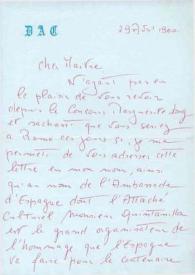 DAC
Cher Maître
N'ayant pas eu
le plaisir de vous revoir
depuis le Concours Marguerite Long
et sachant que vous seriez
à Rome ces jours ci, je me
permets de vous adresser cette
lettre en mon nom, ainsi
qu'au nom de l'Ambassade
d'Espagne dont l'Attaché
Culturel Monsieur Quintanilla
est le grand organisateur de
l'hommage que l'Espagne
va faire pour le centenaire